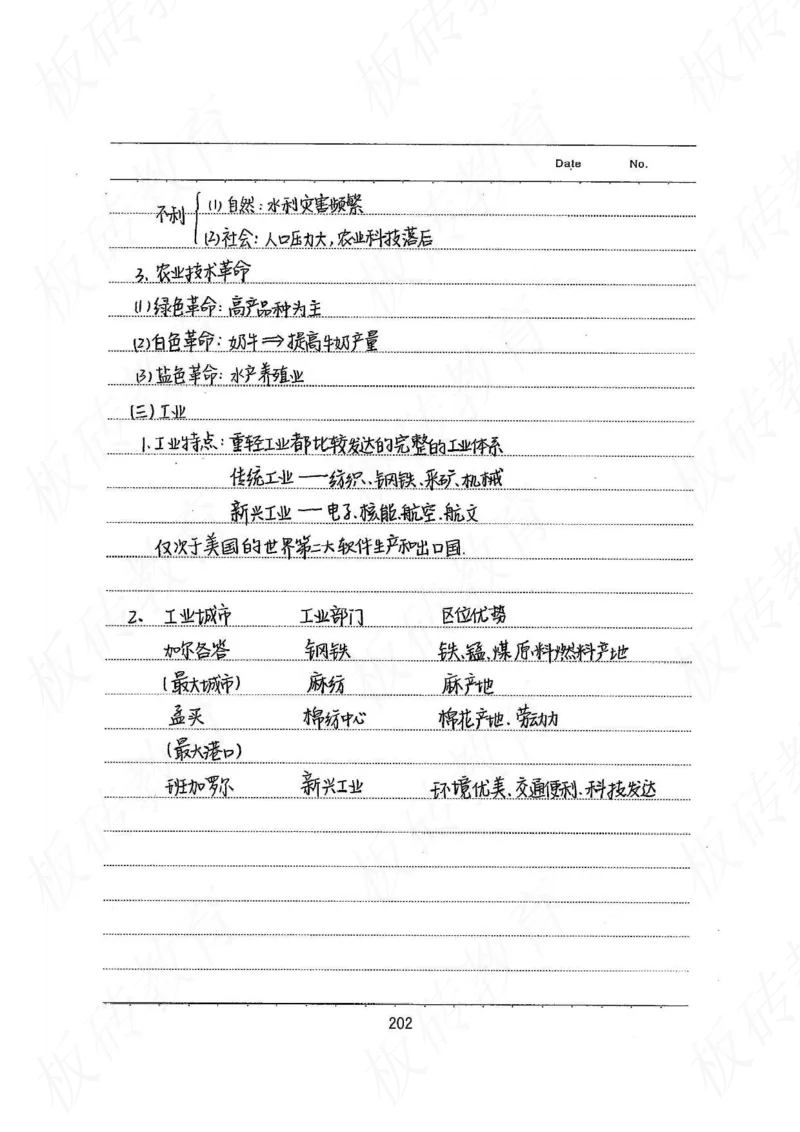 Date No.
不利 (1)自然:水利灾害频繁
(2)社会:人口压力大,农业科技落后
3、农业技术革命
(1)绿色革命:高产品种为主
(2)白色革命:奶牛⇒提高牛奶产量
(3)盐色革命:水产养殖业
(三)工业
1.工业特点:重轻工业都比较发达的完整的工业体系
传统工业——纺织、钢铁、采矿、机械
新兴工业——电子、核能、航空、航文
仅次于美国的世界第二大软件生产和出口国.
2、 工业城市 工业部门 区位优势
加尔各答 钢铁 铁、锰、煤原料燃料产地
(最大城市) 麻纺 麻产地
孟买 棉纺中心 棉花产地、劳动力
(最大港口)
班加罗尔 新兴工业 环境优美、交通便利、科技发达
202
板砖教育